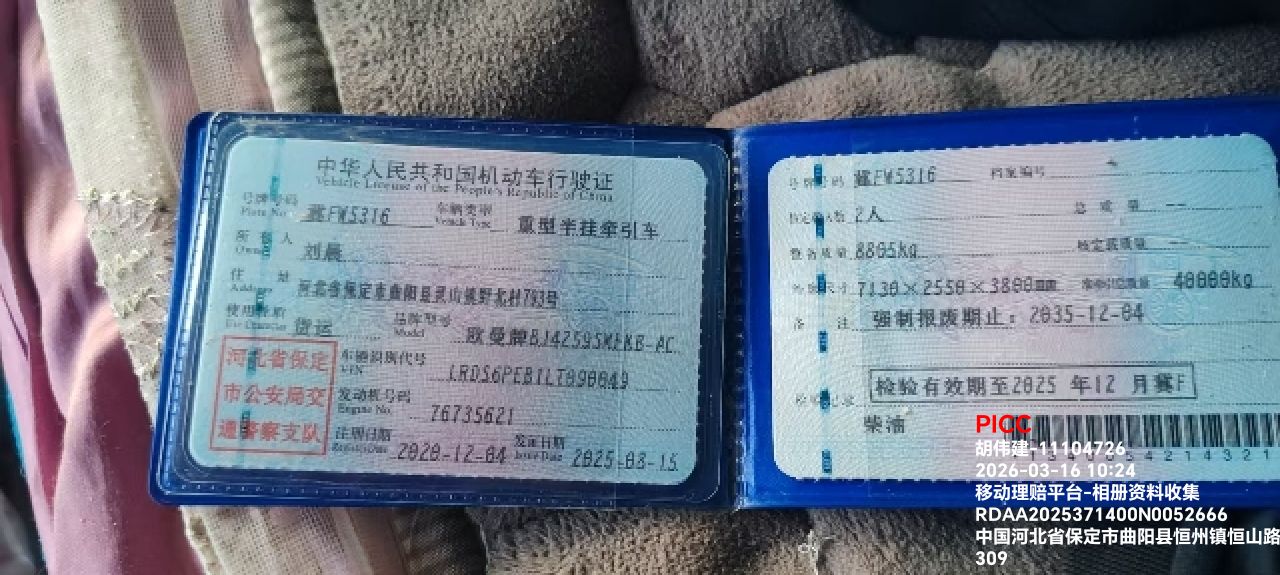 中华人民共和国机动车行驶证
Vehicle License of the People's Republic of China
号牌号码 冀FW5316 车辆类型 重型半挂牵引车
Plate No. Vehicle Type
所有人 刘晨
Owner
住址 河北省保定市曲阳县灵山镇野北村783号
Address
使用性质 货运 品牌型号 欧曼牌BJ4259SMFKB-AC
Use Character Model
河北省保定
市公安局交
通警察支队
车辆识别代号 LRDS6PEB1LT090049
VIN
发动机号码 76735621
Engine No.
注册日期 2020-12-04 发证日期 2025-08-15
Issue Date
号牌号码 冀FW5316 档案编号
核定载人数 2人 总质量 --
整备质量 8805kg 核定载质量 --
外廓尺寸 7130×2550×3800mm 准牵引总质量 40000kg
备注 强制报废期止：2035-12-04
检验有效期至2025 年12 月冀F
检验记录
柴油
PICC
胡伟建-11104726
2026-03-16 10:24
移动理赔平台-相册资料收集
RDAA2025371400N0052666
中国河北省保定市曲阳县恒州镇恒山路
309